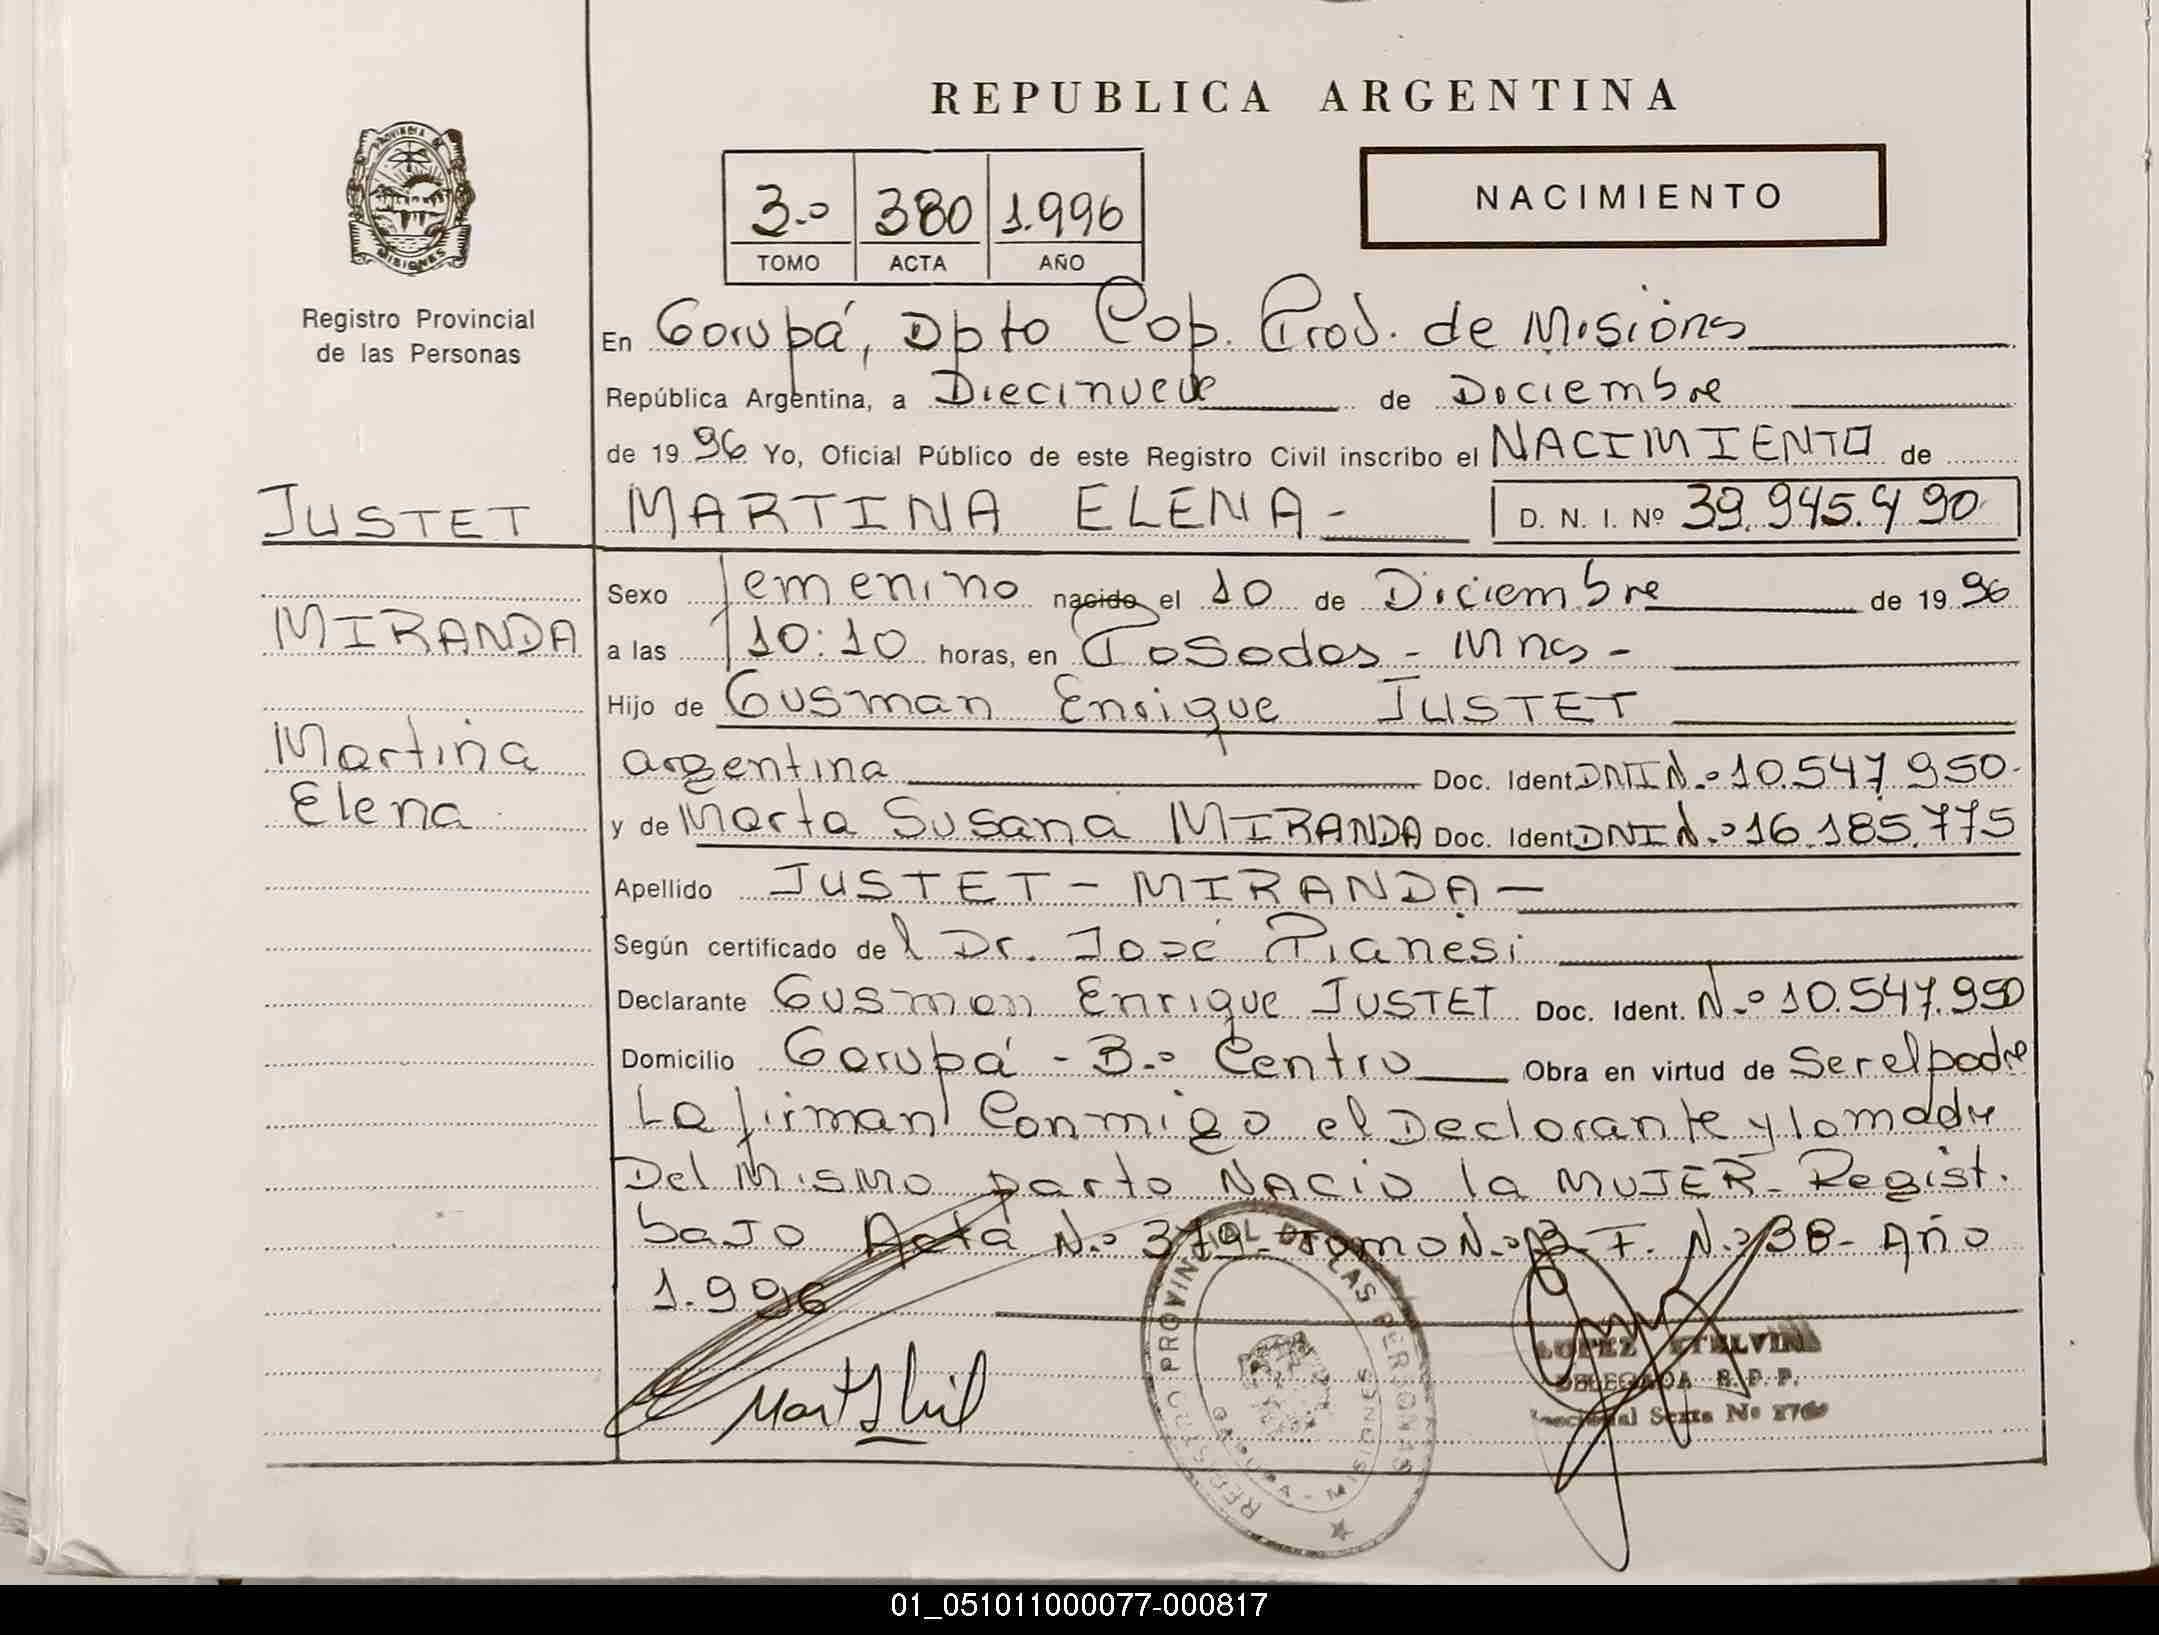 REPUBLICA ARGENTINA
PROVINCIA DE
MISIONES
Registro Provincial
de las Personas
3.º 380 1.996
TOMO ACTA AÑO
NACIMIENTO
En Garupá, Dpto Cap. Prov. de Misiones
República Argentina, a Diecinueve de Diciembre
de 1996 Yo, Oficial Público de este Registro Civil inscribo el NACIMIENTO de
JUSTET
MARTINA ELENA- D. N. I. Nº 39.945.490
MIRANDA
Martina
Elena
Sexo femenino nacido el 10 de Diciembre de 1996
a las 10:10 horas, en Posadas - Mnes -
Hijo de Gusman Enrique JUSTET
argentina Doc. Ident. DNI N.º 10.547.950-
y de Marta Susana MIRANDA Doc. Ident. DNI N.º 16.185.775
Apellido JUSTET - MIRANDA -
Según certificado del Dr. José Pianesi
Declarante Gusman Enrique JUSTET Doc. Ident. N.º 10.547.950
Domicilio Garupá - B.º Centro Obra en virtud de Ser el padre
La firman Conmigo el Declarante y la madre
Del Mismo parto NACIO la MUJER- Regist.
bajo Acta N.º 379- Tomo N.º 3- F. N.º 38- Año
1.996
REGISTRO PROVINCIAL DE LAS PERSONAS
GARUPA - MISIONES
LOPEZ ETELVINA
DELEGADA R. P. P.
01_051011000077-000817